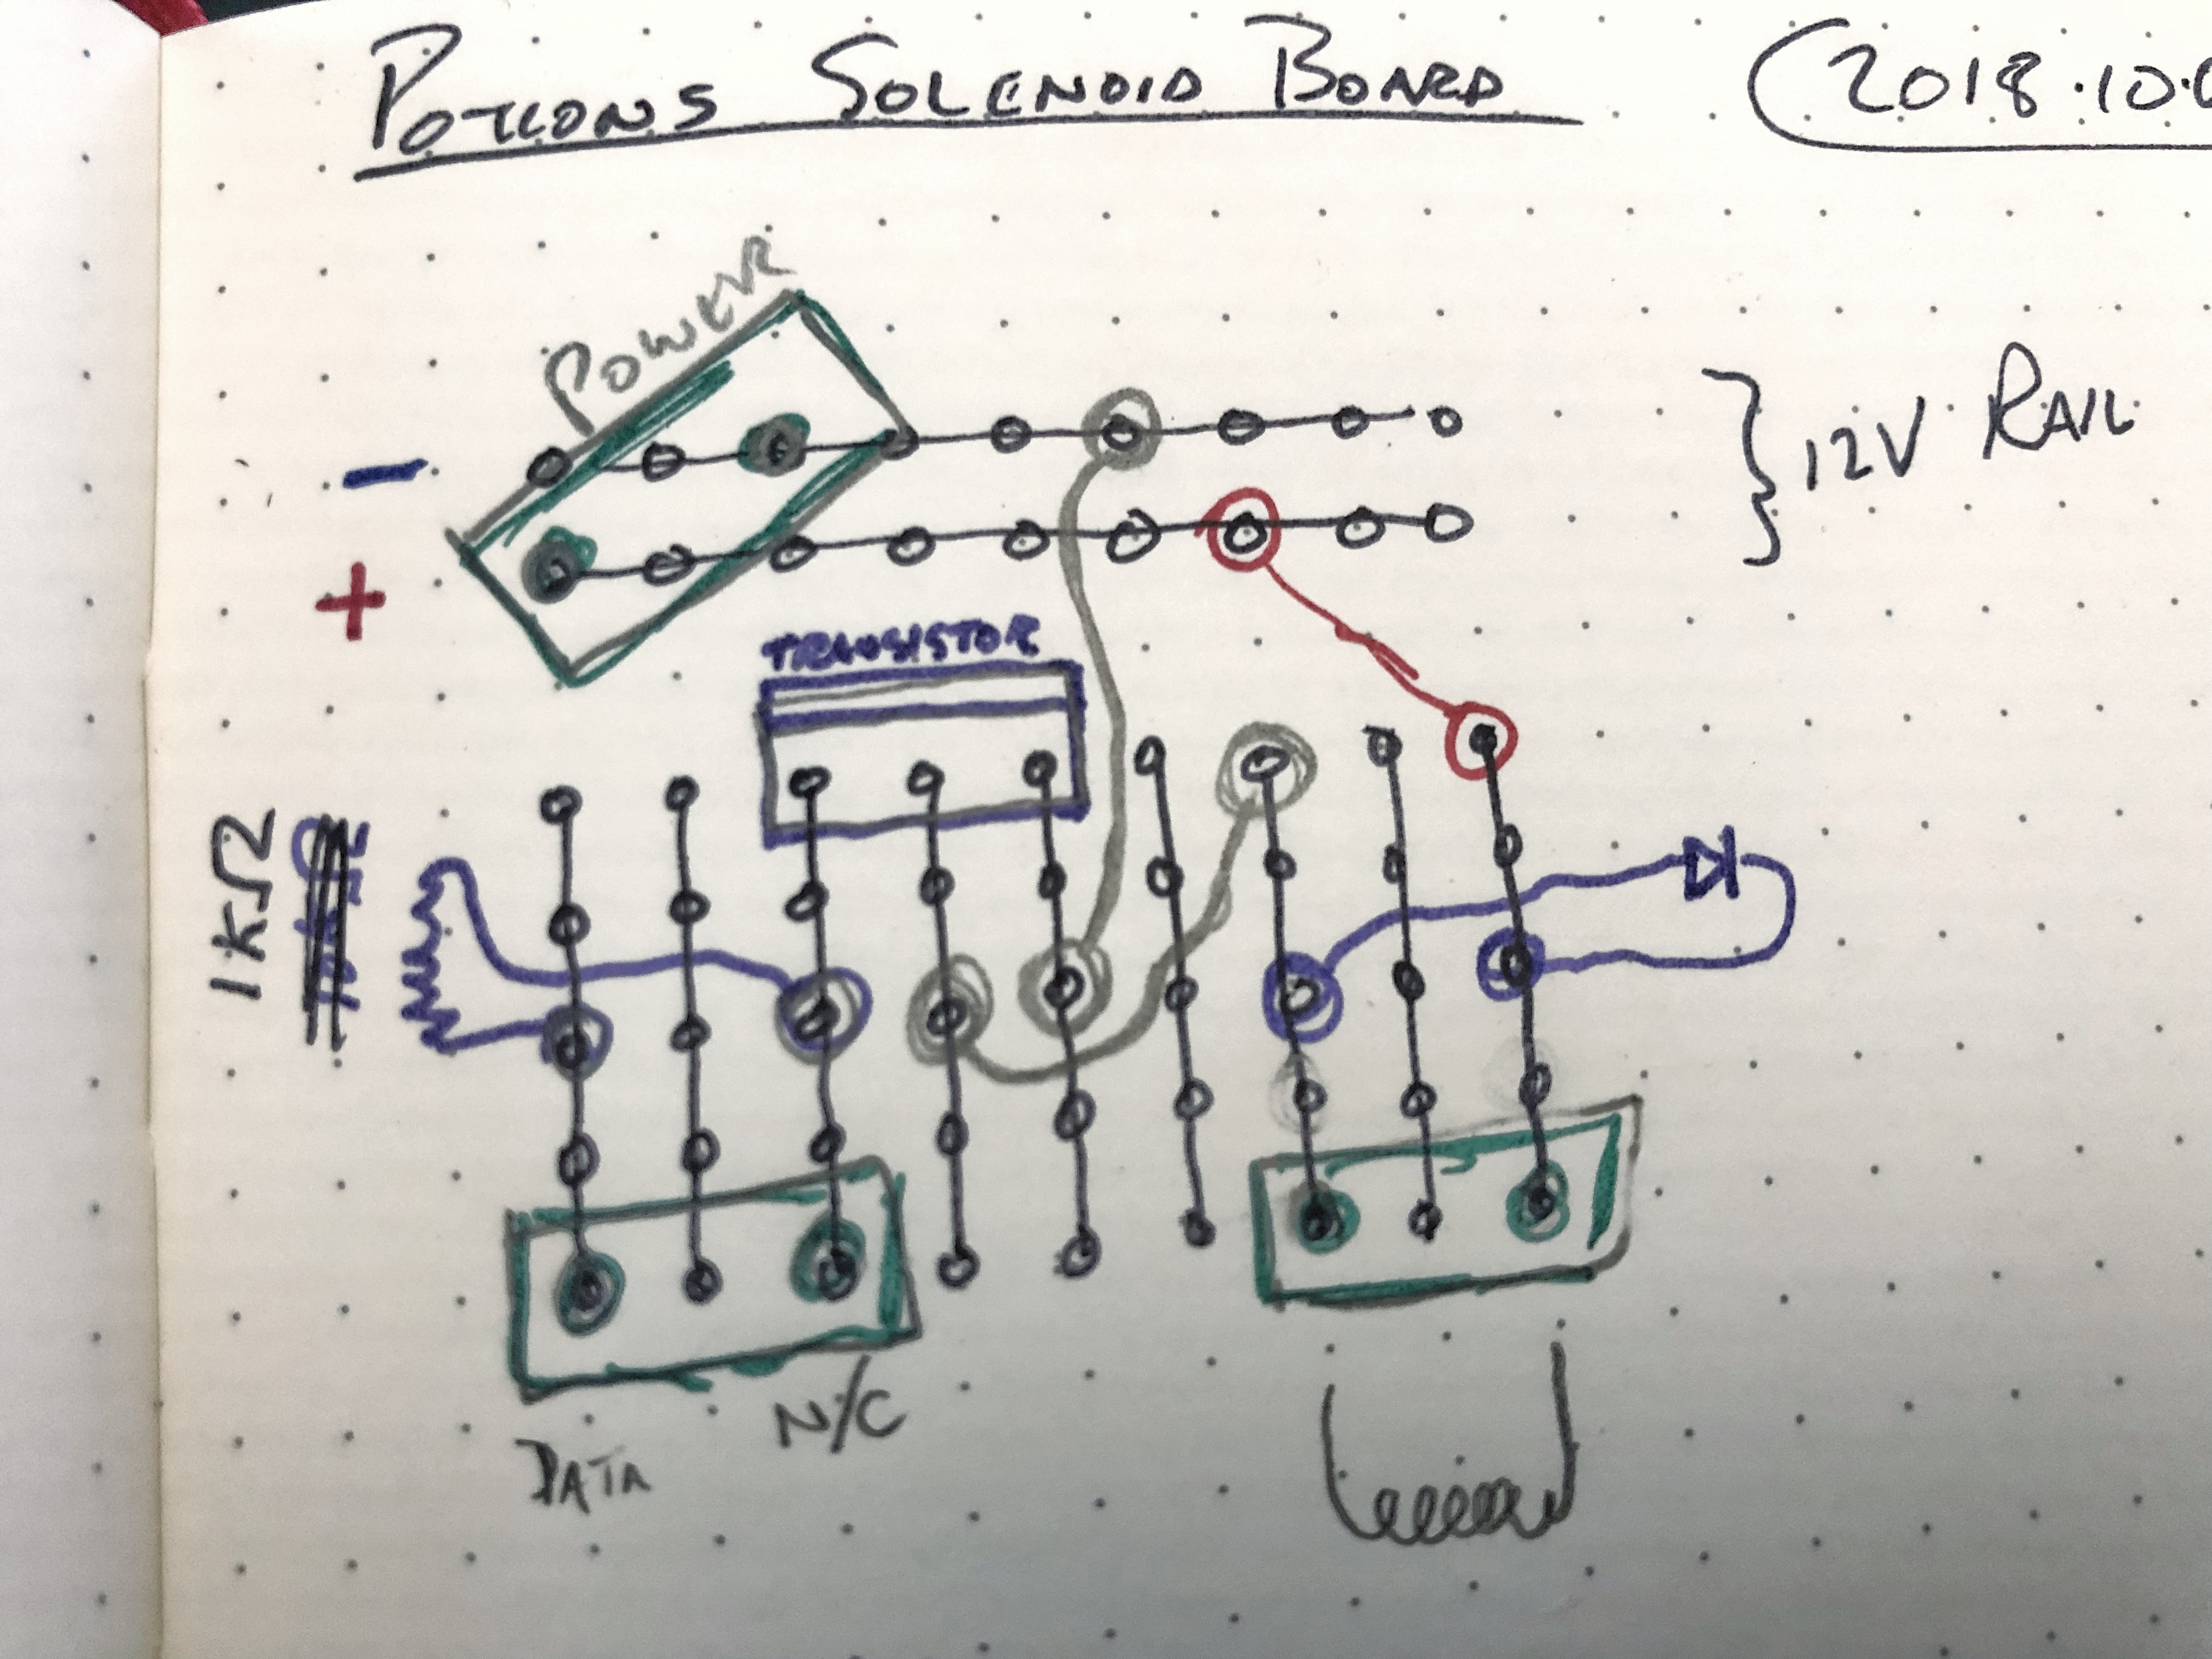 POTIONS SOLENOID BOARD
(2018.10.0
POWER
-
+
} 12V RAIL
TRANSISTOR
1KΩ
DATA
N/C